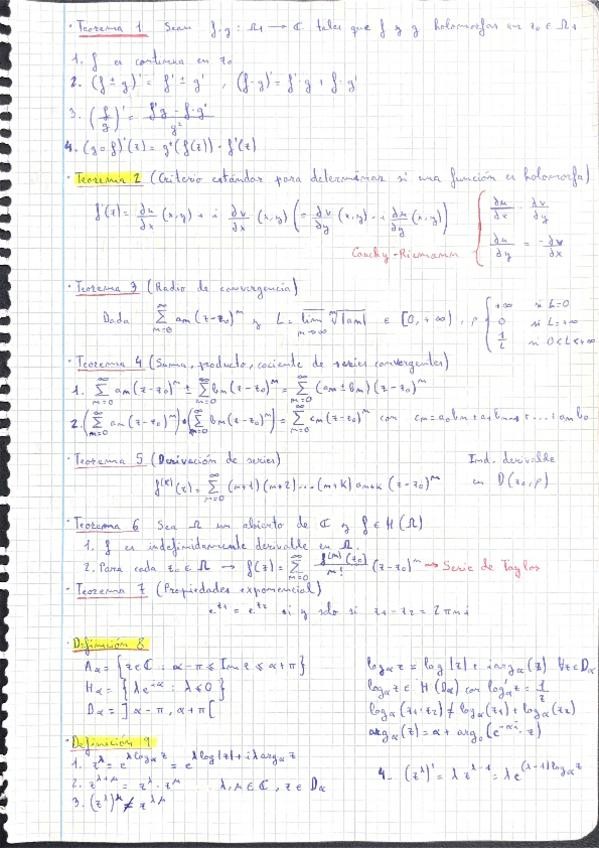 · Teorema 1 Sean f, g : Ω₁ → ℂ tales que f y g holomorfas en z₀ ∈ Ω₁
1. f es continua en z₀
2. (f ± g)' = f' ± g' , (f · g)' = f' · g + f · g'
3. (f/g)' = (f'g − f·g')/g²
4. (g ∘ f)'(z) = g'(f(z)) · f'(z)
· Teorema 2 (Criterio estándar para determinar si una función es holomorfa)
f'(z) = ∂u/∂x (x,y) + i ∂v/∂x (x,y) (= ∂v/∂y (x,y) − i ∂u/∂y (x,y))
Cauchy-Riemann { ∂u/∂x = ∂v/∂y
∂u/∂y = −∂v/∂x
· Teorema 3 (Radio de convergencia)
Dada ∑_{n=0}^{∞} an (z−z₀)ⁿ y L = lim_{n→∞} ⁿ√|an| ∈ [0, +∞) , ρ { +∞ si L=0
0 si L=+∞
1/L si 0<L<+∞
· Teorema 4 (Suma, producto, cociente de series convergentes)
1. ∑_{n=0}^{∞} an (z−z₀)ⁿ ± ∑_{n=0}^{∞} bn (z−z₀)ⁿ = ∑_{n=0}^{∞} (an ± bn)(z−z₀)ⁿ
2. (∑_{n=0}^{∞} an (z−z₀)ⁿ) · (∑_{n=0}^{∞} bn (z−z₀)ⁿ) = ∑_{n=0}^{∞} cn (z−z₀)ⁿ con cn = a₀bn + a₁bn-1 + ... + anb₀
· Teorema 5 (Derivación de series) Ind. derivable
f^(k)(z) = ∑_{n=0}^{∞} (n+1)(n+2)...(n+k) an+k (z−z₀)ⁿ en D(z₀, ρ)
· Teorema 6 Sea Ω un abierto de ℂ y f ∈ H(Ω)
1. f es indefinidamente derivable en Ω.
2. Para cada z₀ ∈ Ω → f(z) = ∑_{n=0}^{∞} f^(n)(z₀)/n! (z−z₀)ⁿ → Serie de Taylor
· Teorema 7 (Propiedades exponencial)
e^{z₁} = e^{z₂} si y sólo si z₁ − z₂ = 2πni
· Definición 8
Aα = {z∈ℂ : α−π ≤ Im z ≤ α+π}
Hα = {λe^{-iα} : λ ≤ 0}
Bα = ]α−π, α+π[
logα z = log|z| + i argα(z) ∀z∈Dα
logα z ∈ H(Dα) con log'α z = 1/z
logα(z₁·z₂) ≠ logα(z₁) + logα(z₂)
argα(z) = α + arg₀(e^{-αi} · z)
· Definición 9
1. z^λ = e^{λ logα z} = e^{λ log|z| + iλ argα z}
2. z^{λ+μ} = z^λ · z^μ λ, μ ∈ ℂ, z ∈ Dα
3. (z^λ)^μ ≠ z^{λμ}
4. (z^λ)' = λ z^{λ−1} = λ e^{(λ−1) logα z}